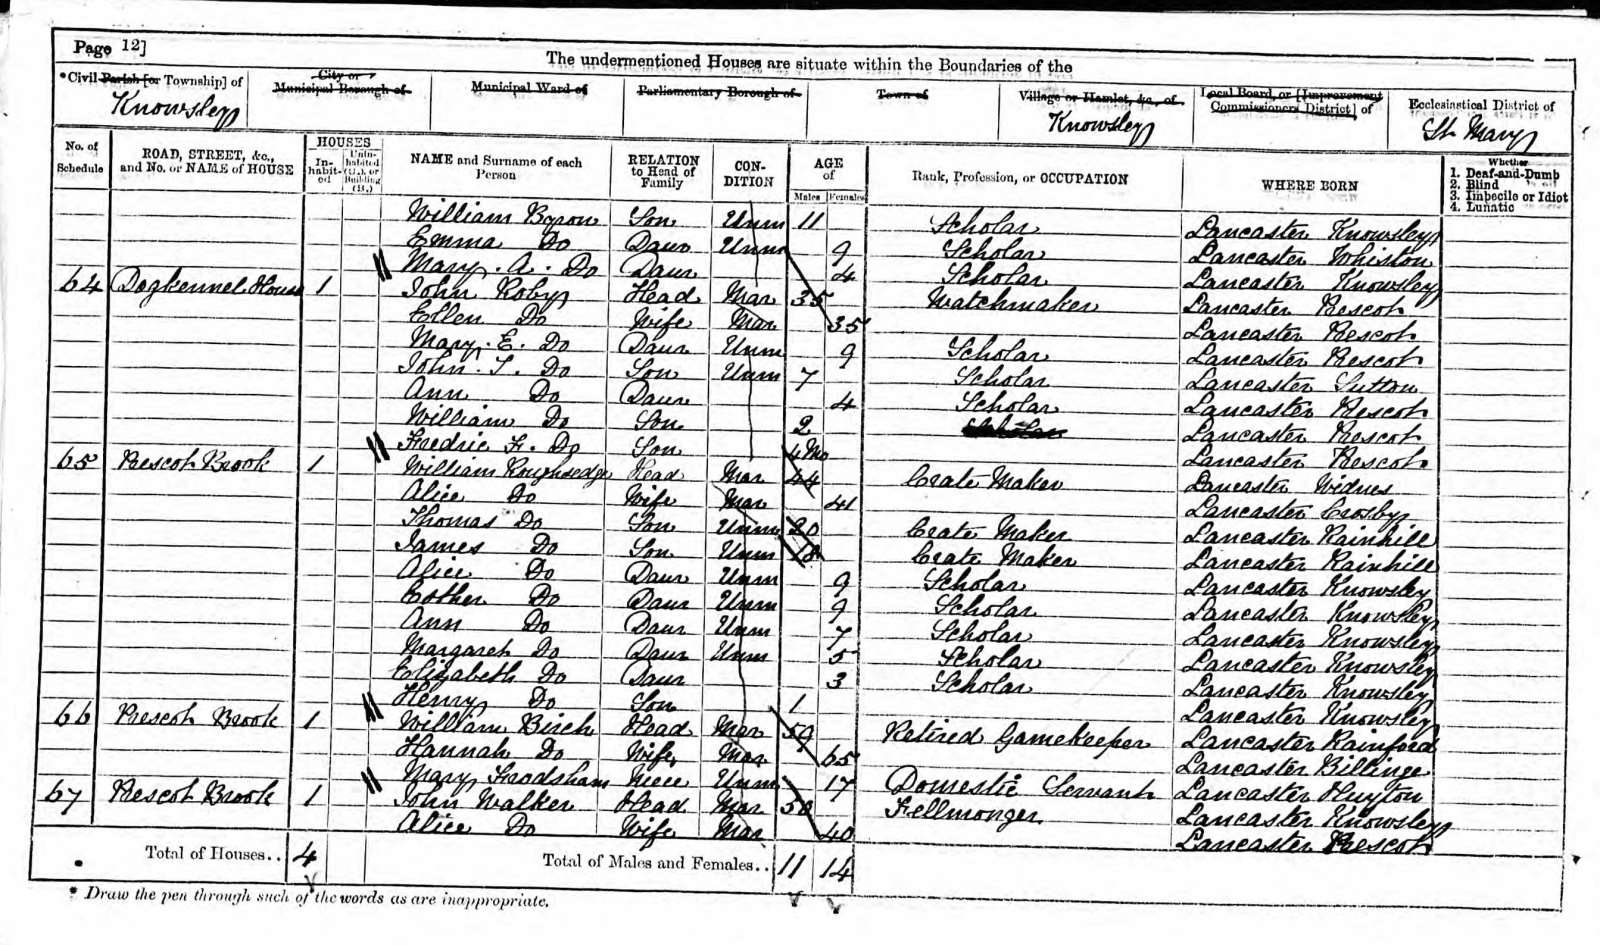 Page 12]
The undermentioned Houses are situate within the Boundaries of the
*Civil Parish [or Township] of
City or Municipal Borough of
Municipal Ward of
Parliamentary Borough of
Town of
Village or Hamlet, &c., of
Local Board, or [Improvement Commissioners District] of
Ecclesiastical District of
Knowsley
Knowsley
St Mary
No. of Schedule
ROAD, STREET, &c., and No. or NAME of HOUSE
HOUSES
In-habit-ed
Unin-habited (U.), or Building (B.)
NAME and Surname of each Person
RELATION to Head of Family
CON-DITION
AGE of
Males
Females
Rank, Profession, or OCCUPATION
WHERE BORN
Whether
1. Deaf-and-Dumb
2. Blind
3. Imbecile or Idiot
4. Lunatic
William Byron Son Unm 11 Scholar Lancaster Knowsley
Emma Do Daur Unm 9 Scholar Lancaster Whiston
Mary. A. Do Daur 4 Scholar Lancaster Knowsley
64 Dogkennel House 1 John Roby Head Mar 35 Watchmaker Lancaster Prescot
Ellen Do Wife Mar 35 Lancaster Prescot
Mary. E. Do Daur Unm 9 Scholar Lancaster Prescot
John. T. Do Son Unm 7 Scholar Lancaster Sutton
Ann Do Daur 4 Scholar Lancaster Prescot
William Do Son 2 Scholar Lancaster Prescot
Fredric F. Do Son 4 Mo Lancaster Prescot
65 Prescot Brook 1 William Roughsedge Head Mar 44 Crate Maker Lancaster Widnes
Alice Do Wife Mar 41 Lancaster Crosby
Thomas Do Son Unm 20 Crate Maker Lancaster Rainhill
James Do Son Unm 18 Crate Maker Lancaster Rainhill
Alice Do Daur Unm 9 Scholar Lancaster Knowsley
Esther Do Daur Unm 9 Scholar Lancaster Knowsley
Ann Do Daur Unm 7 Scholar Lancaster Knowsley
Margaret Do Daur Unm 5 Scholar Lancaster Knowsley
Elizabeth Do Daur 3 Scholar Lancaster Knowsley
Henry Do Son 1 Lancaster Knowsley
66 Prescot Brook 1 William Birch Head Mar 59 Retired Gamekeeper Lancaster Rainford
Hannah Do Wife Mar 65 Lancaster Billinge
Mary Frodsham Niece Unm 17 Domestic Servant Lancaster Huyton
67 Prescot Brook 1 John Walker Head Mar 50 Fellmonger Lancaster Knowsley
Alice Do Wife Mar 40 Lancaster Prescot
Total of Houses.. 4
Total of Males and Females.. 11 14
* Draw the pen through such of the words as are inappropriate.